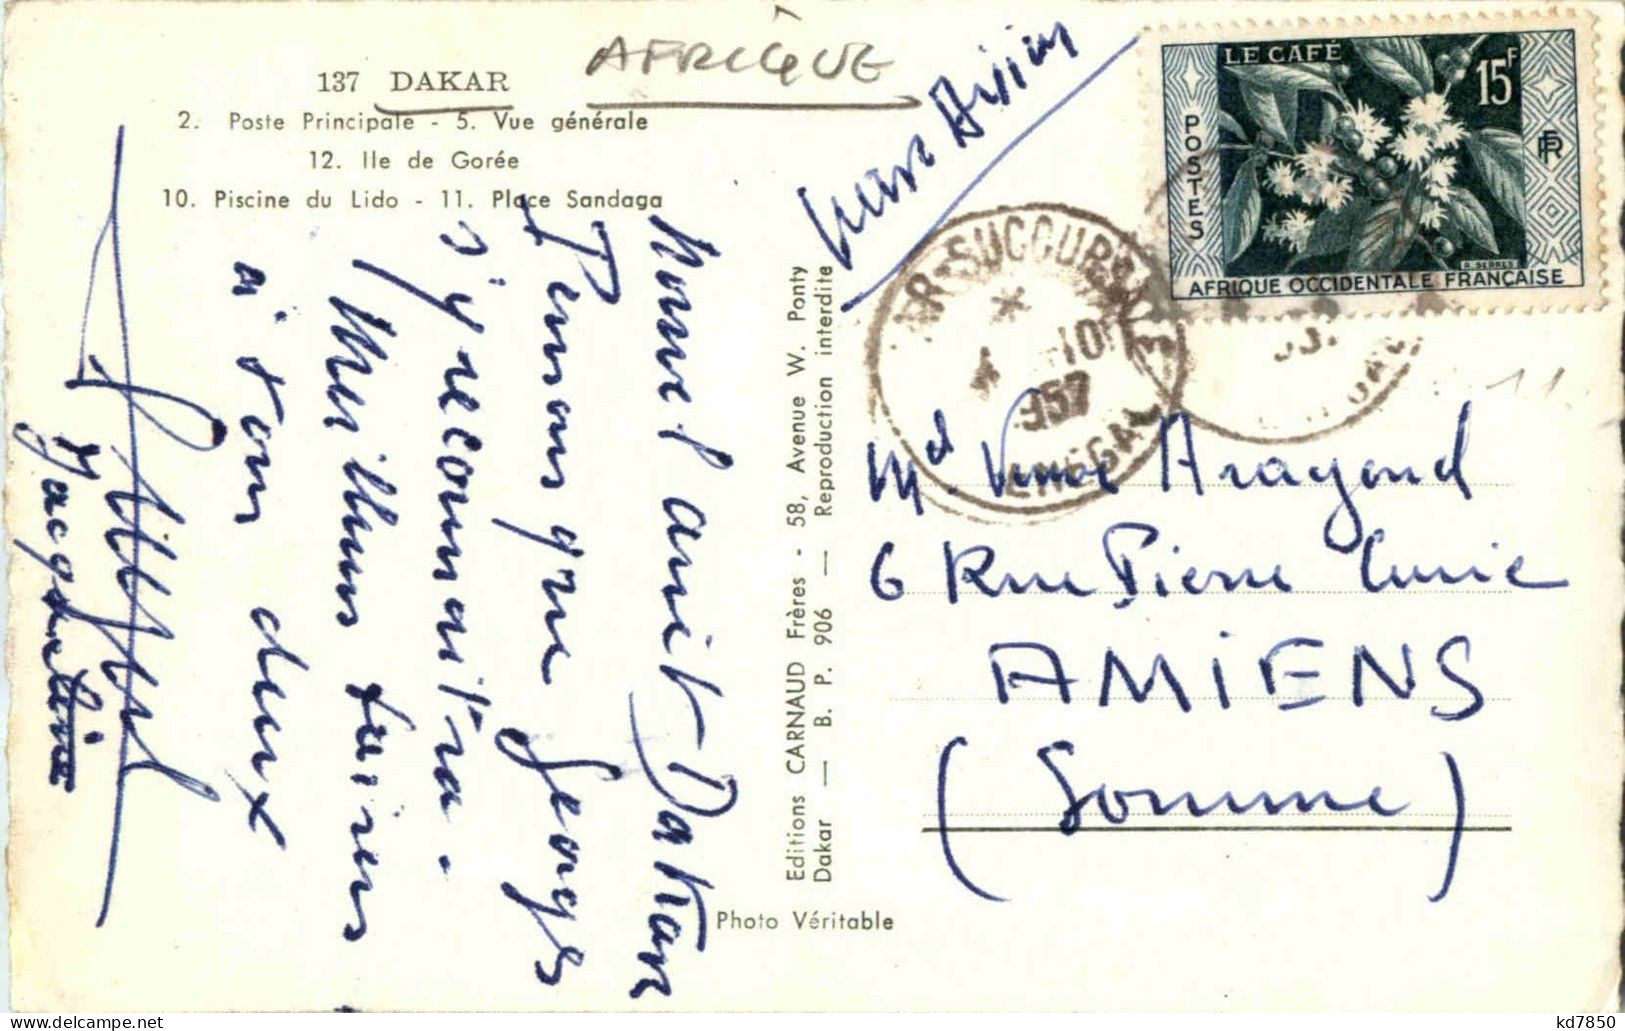 137 DAKAR
AFRIQUE
2. Poste Principale - 5. Vue générale
12. Ile de Gorée
10. Piscine du Lido - 11. Place Sandaga
Par Avion
LE CAFÉ
15F
POSTES
RF
AFRIQUE OCCIDENTALE FRANÇAISE
SUCCURSALE
4 10
957
SENEGAL
Nouvel arrêt Dakar
Pensons que Georges
s'y reconnaîtra.
Meilleurs baisers
à tous deux
Jacqueline
Editions CARNAUD Frères - 58, Avenue W. Ponty
Dakar — B. P. 906 — Reproduction interdite
Photo Véritable
Md Veuve Aragond
6 Rue Pierre Curie
AMIENS
(Somme)
11
kd7850